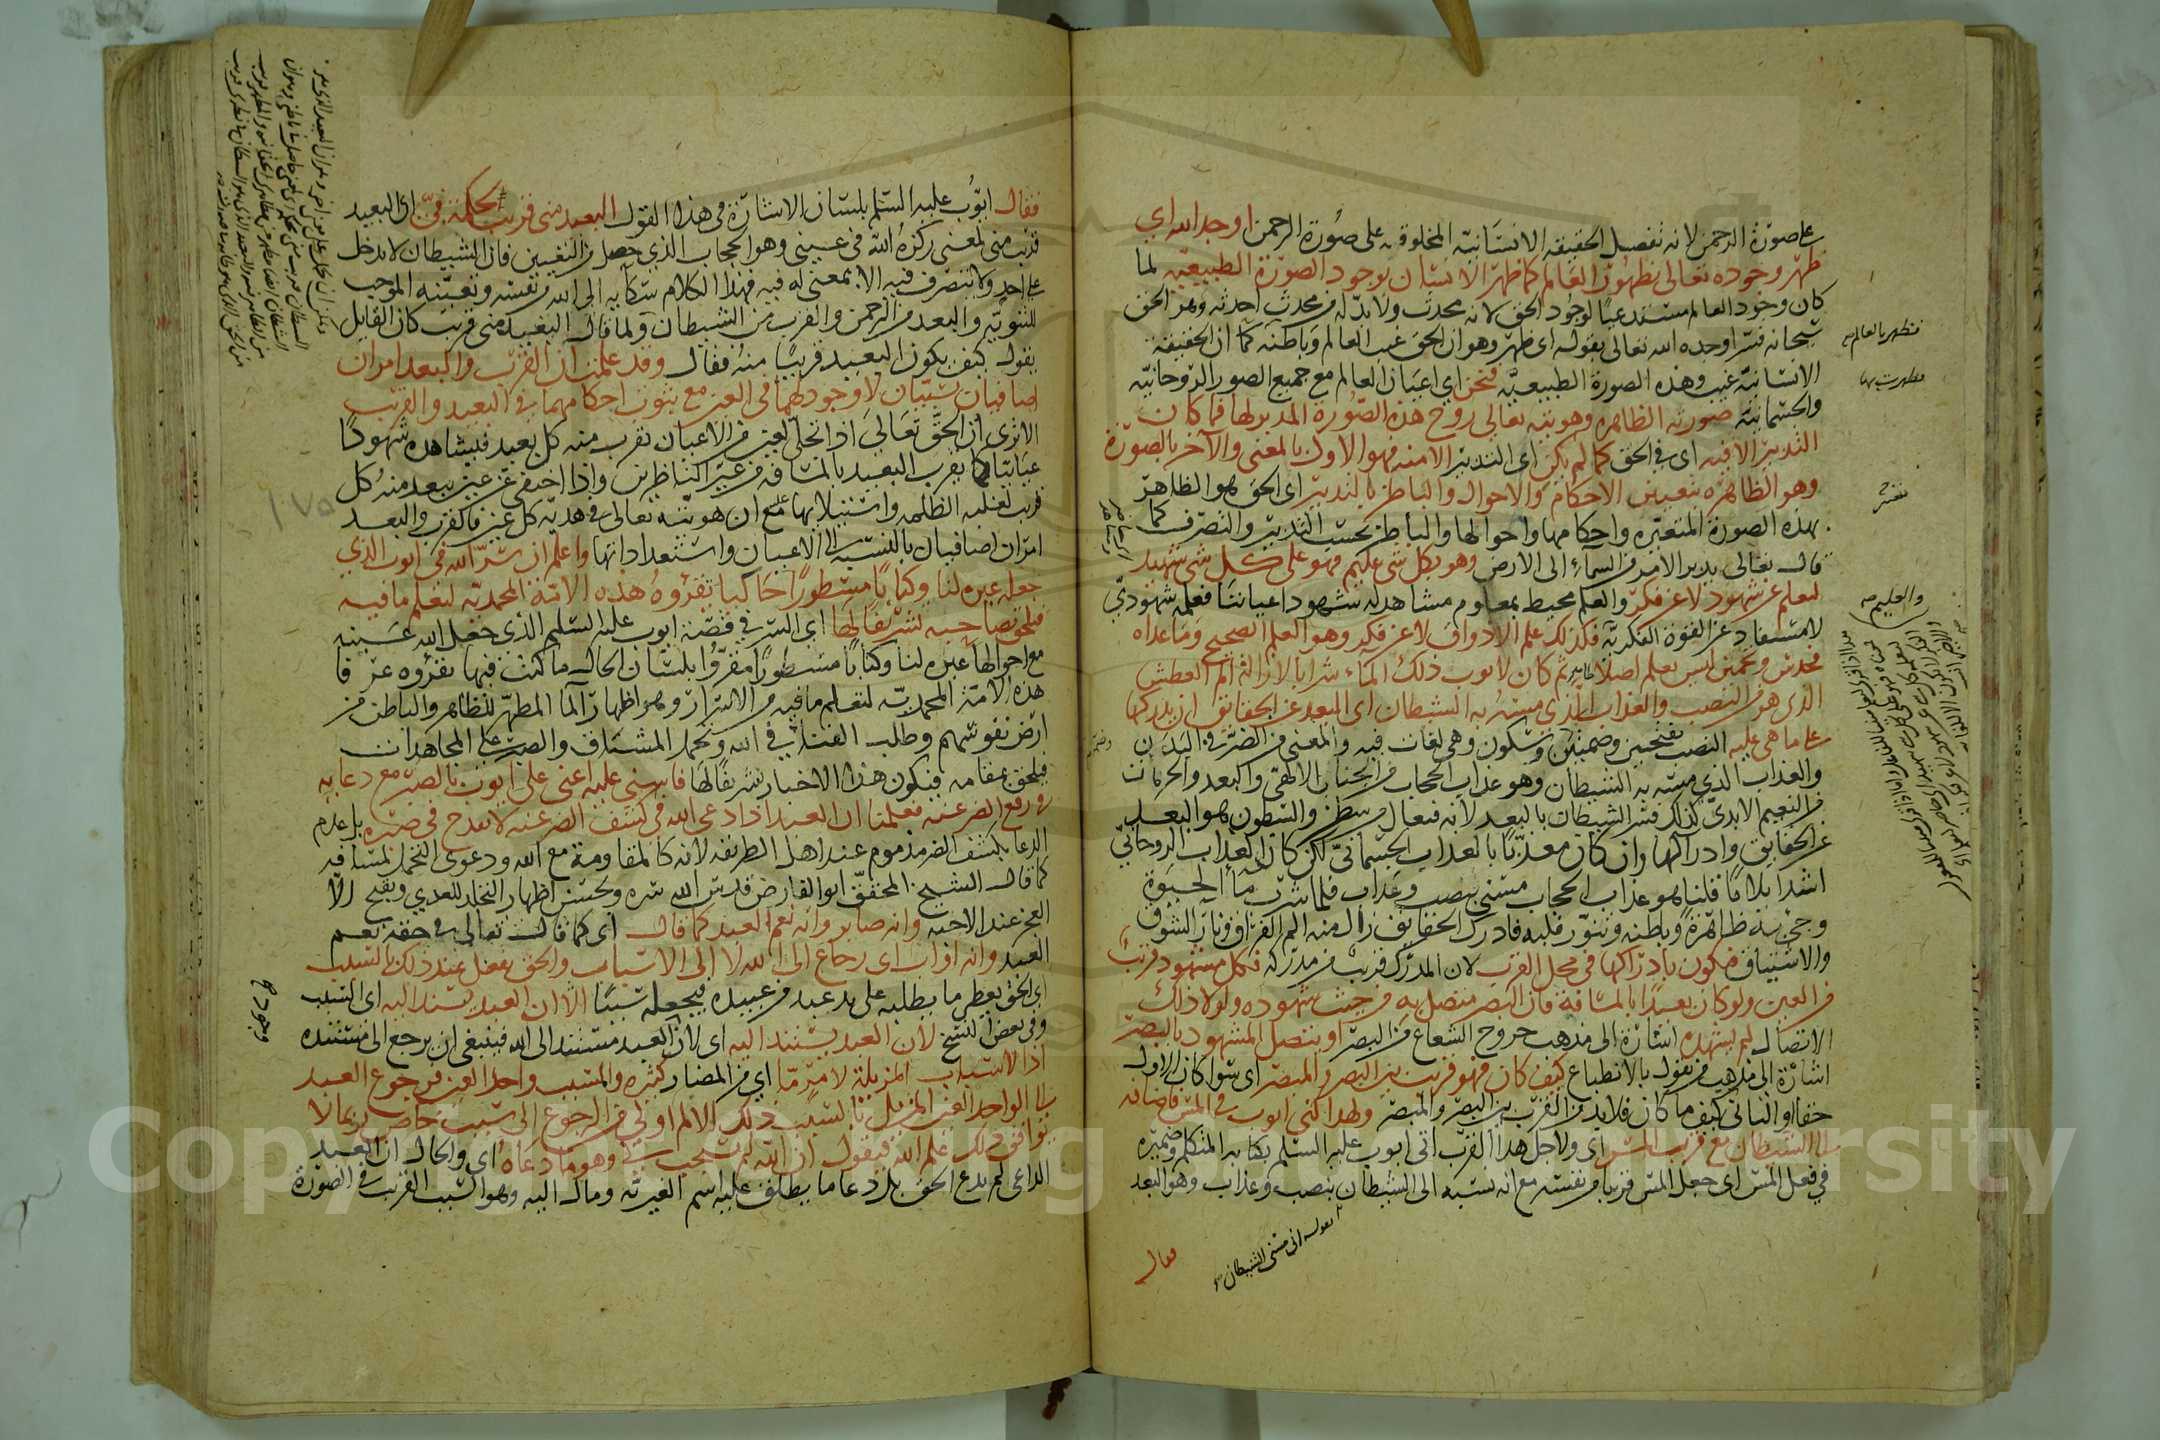 على صورة الرحمن لانه تفصيل الحقيقة الانسانية المخلوقة على صورة الرحمن اوجد الله اي
ظهر وجوده تعالى بظهور العالم كما ظهر الانسان بوجود الصورة الطبيعية لما
كان وجود العالم مستدعيا لوجود الحق لانه محدث ولا بد له من محدث احدثه وهو الحق
سبحانه فسر اوجده الله تعالى بقوله اي ظهر وهو ان الحق غيب العالم وباطنه كما ان الحقيقة
الانسانية غيب وهذه الصورة الطبيعية فنحن اي اعيان العالم مع جميع الصور الروحانية
والجسمانية صورته الظاهرة وهويته تعالى روح هذه الصورة المدبر لها فما كان
التدبير الا فيه اي في الحق كما لم يكن اي التدبير الا منه فهو الاول بالمعنى والآخر بالصورة
وهو الظاهر بتعيين الاحكام والاحوال والباطن بالتدبير اي الحق هو الظاهر
بهذه الصورة المتغيرة واحكامها واحوالها والباطن بحسب التدبير والتصرف كما
قال تعالى يدبر الامر من السماء الى الارض وهو بكل شي عليم فهو على كل شي شهيد
ليعلم عن شهود لا عن فكر والعلم محيط بمعلوم مشاهد له شهودا عيانيا فعلمه شهودي
لا مستفاد عن القوة الفكرية فكذلك علم الاذواق لا عن فكر وهو العلم الصحيح وما عداه
فحدس وتخمين ليس بعلم اصلا ثم كان لايوب ذلك الماء شرابا لازالة الم العطش
الذي هو من النصب والعذاب الذي مسه به الشيطان اي البعد عن الحقايق ان يدركها
على ما هي عليه النصب بفتحين وضمتين وسكون وهي لغات فيه والمعنى من الضر في البدن
والعذاب الذي مسه به الشيطان وهو عذاب الحجاب من الجناب الالهي والبعد والحرمان
من النعيم الابدي كذلك فسر الشيطان بالبعد لانه فيعال من شطن والشطون هو البعد
عن الحقايق وادراكها وان كان معذبا بالعذاب الجسماني لكن كان العذاب الروحاني
اشد ايلاما قلنا هو عذاب الحجاب مسني بنصب وعذاب فلما شرب ماء الحيوة
وظاهره وباطنه وتنور قلبه فادرك الحقايق زال منه الم الفراق ونار الشوق
والاشتياق فيكون بادراكها في محل القرب لان المدرك قريب من مدركه فكل مشهود قريب
من العين ولو كان بعيدا بالمسافة فان البصر متصل به من حيث شهوده ولولا ذلك
الاتصال لم يشهده اشارة الى مذهب خروج الشعاع من البصر او يتصل المشهود بالبصر
اشارة الى مذهب من يقول بالانطباع كيف كان فهو قريب بين البصر والمبصر اي سواء كان الاول
حقا او الثاني كيف ما كان فلا بد من القرب بين البصر والمبصر ولهذا كنى ايوب في المس فاضافه
الى الشيطان مع قرب المس اي ولاجل هذا القرب اتى ايوب عليه السلم بكناية المتكلم وضميره
في فعل المس اي جعل المس قريبا من نفسه مع انه نسبه الى الشيطان بنصب وعذاب وهو البعد
بقوله اني مسني الشيطان
فقال
فتظهر بالعالم
والعليم
فقال ايوب عليه السلم بلسان الاشارة في هذا القول البعيد مني قريب لحكمة في اي البعيد
قريب مني لمعنى ركزه الله في عيني وهو الحجاب الذي حصل من التعين فان الشيطان لا يدخل
على احد ولا يتصرف فيه الا بمعنى له فيه فهذا الكلام شكاية الى الله من نفسه وتعينه الموجب
للثنوية والبعد من الرحمن والقرب من الشيطان ولما قال البعيد مني قريب كان القايل
يقول كيف يكون البعيد قريبا منه فقال وقد علمت ان القرب والبعد امران
اضافيان نسبتان لا وجود لهما في العين مع ثبوت احكامهما في البعيد والقريب
الا ترى ان الحق تعالى اذا تجلى لعين من الاعيان تقرب منه كل بعيد فيشاهده شهودا
عيانيا كما يقرب البعيد بالمسافة من عين الناظرين واذا اختفى عن عين يبعد منه كل
قريب لغلبة الظلمة واستيلائها مع ان هويته تعالى في هذية كل عين فالقرب والبعد
امران اضافيان بالنسبة الى الاعيان واستعداداتها واعلم ان سر الله في ايوب الذي
جعله عبرة لنا وكتابا مسطورا حاليا تقرؤه هذه الامة المحمدية لتعلم ما فيه
فتلحق بصاحبه تشريفا لها اي السر في قصة ايوب عليه السلم الذي جعل الله عينه
مع احوالها عبرة لنا وكتابا مسطورا مقروا بلسان الحال ما كتب فيها تقرؤه
هذه الامة المحمدية لتعلم ما فيه من الاسرار وهو اظهار الماء المطهر للظاهر والباطن من
ارض نفوسهم وطلب الفناء في الله وتحمل المشاق والصبر على المجاهدات
فيلحق بمقامه فيكون هذا الاخبار تشريفا لها فاثنى عليه اعني على ايوب بالصبر مع دعايه
في رفع الضر عنه فعلمنا ان العبد اذا دعى الله في كشف الضر عنه لا يقدح في صبره بل عدم
الدعا بكشف الضر مذموم عند اهل الطريقة لانه كالمقاومة مع الله ودعوى التحمل لمشاقه
كما قال الشيخ المحقق ابو الفارض قدس الله سره ويحسن اظهار التجلد للعدى ويقبح الا
العجز عند الاحبة وانه صابر وانه نعم العبد كما قال اي كما قال تعالى في حقه نعم
العبد وانه اواب اي رجاع الى الله لا الى الاسباب والحق يفعل عند ذلك بالسبب
اي الحق يعطي ما يطلبه على يد عبد من عبيده فيجعله سببا الا ان العبد يستند اليه اي السبب
وفي بعض النسخ لان العبد يستند اليه اي لان العبد مستند الى الله فينبغي ان يرجع الى مستنده
اذ الاسباب المزيلة لامر ما اي من المضار كثيرة والمسبب واحد العين فرجوع العبد
الى الواحد العين المزيل بالسبب ذلك الالم اولى من الرجوع الى سبب خاص ربما لا
يوافق ذلك علم الله فيقول ان الله لم يستجب لي وهو ما دعاه اي والحال ان العبد
الداعي لم يدع الحق بل دعا ما يطلق عليه اسم الغيرية ومال اليه وهو السبب القريب في الصورة
وجود ح
Copyright © King Saud University